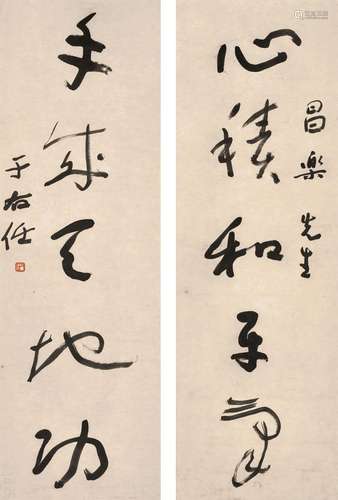 昌樂先生
心積和平氣
手成天地功
于右任